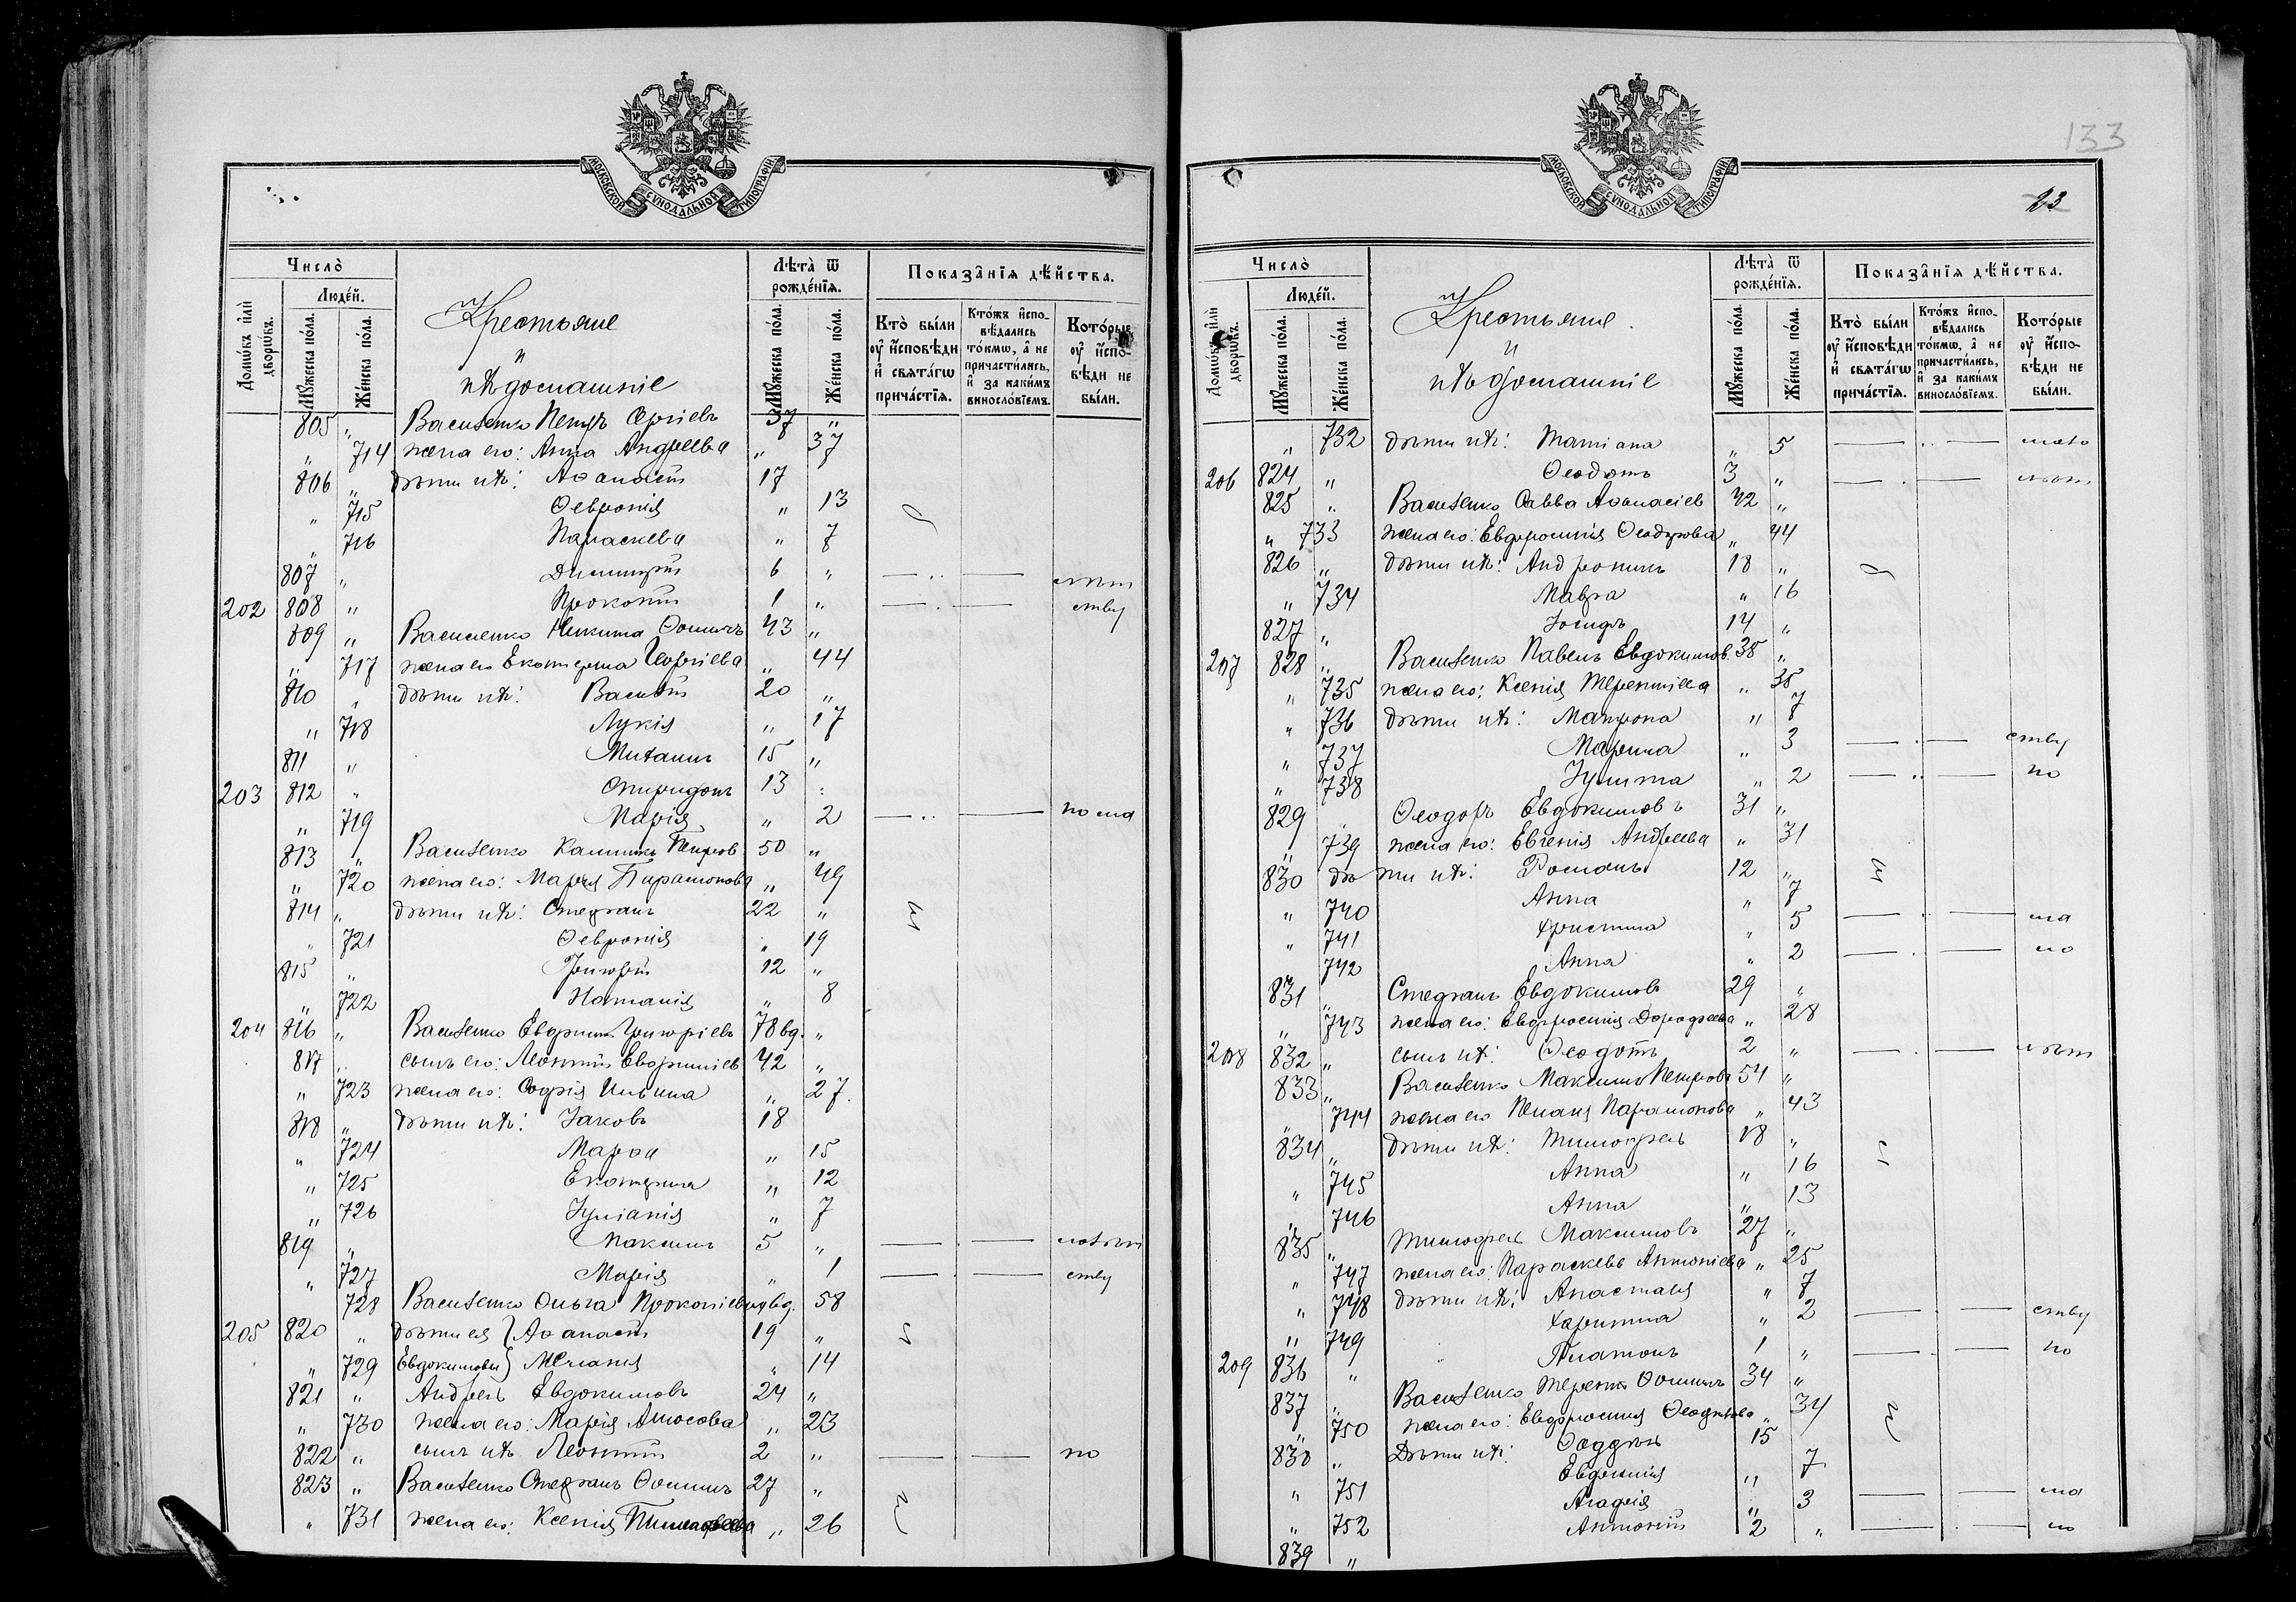 МОСКОВСКОЙ СѴНОДАЛЬНОЙ ТИПОГРАФІИ
Число̀
Людéй.
Домѡ́въ и҆лѝ дворѡ́въ.
Мꙋ́жеска по́ла.
Же́нска по́ла.
Крестьяне
и
ихъ домашніе
Лѣта̀ ѿ рожде́нїѧ.
Мꙋ́жеска по́ла.
Же́нска по́ла.
Показа̂нїѧ дѣ́йства.
Кто̀ бы́ли ᲂу҆ и҆сповѣди и҆ свѧта́гѡ прича́стїѧ.
Кто́жъ и҆спо-вѣ́дались то́кмѡ, а҆ не причасти́лись, и҆ за каки́мъ винослові́емъ.
Кото́рые ᲂу҆ и҆спо-вѣди не бы́ли.
805 „ Василенко Петръ Сергіевъ 37 „
„ 714 жена его: Анна Андреева „ 37
806 „ дѣти ихъ: Аѳанасій 17
„ 715 Ѳевронія „ 13
„ 716 Параскева „ 7
807 „ Димитрій 6 „ — .. — лѣт
202 808 „ Прокопій 1 „ — . — ству
809 „ Василенко Никита Ѳоминъ 43 „
„ 717 жена его Екатерина Георгіева „ 44
810 „ дѣти ихъ: Василій 20 „
„ 718 Лукія „ 17
811 „ Михаилъ 15 „
203 812 „ Спиридонъ 13 „
„ 719 Марія „ 2 — .. — по ма
813 „ Василенко Калинъ Петров 50 „
„ 720 жена его: Марія Парамонова „ 49
814 „ дѣти ихъ: Стефанъ 22 „
„ 721 Ѳевронія „ 19
815 „ Григорій 12 „
„ 722 Наталія „ 8
204 816 „ Василенко Евфимъ Григоріевъ 78 вд. „
817 „ сынъ его: Леонтій Евфиміев 42 „
„ 723 жена его: Софія Ильина „ 27.
818 „ дѣти ихъ: Іаковъ 18
„ 724 Марѳа „ 15
„ 725 Екатерина „ 12
„ 726 Іуліанія „ 7
819 „ Максимъ 5 „ — . — малѣт
„ 727 Марія „ 1 — . — ству
728 Василенко Ольга Прокопіева вд. 58
205 820 „ дѣти ея Аѳанасій 19 „
„ 729 Евдокимовы „ 14
821 „ Андрей Евдокимовъ 24 „
„ 730 жена его: Марія Амосова „ 23
822 „ сынъ ихъ Леонтій 2 „ — — по
823 „ Василенко Стефанъ Ѳоминъ 27 „
„ 731 жена его: Ксенія Тимоѳеева „ 26
133
23
МОСКОВСКОЙ СѴНОДАЛЬНОЙ ТИПОГРАФІИ
Число̀
Людéй.
Домѡ́въ и҆лѝ дворѡ́въ.
Мꙋ́жеска по́ла.
Же́нска по́ла.
Крестьяне
и
ихъ домашніе
Лѣта̀ ѿ рожде́нїѧ.
Мꙋ́жеска по́ла.
Же́нска по́ла.
Показа̂нїѧ дѣ́йства.
Кто̀ бы́ли ᲂу҆ и҆сповѣди и҆ свѧта́гѡ прича́стїѧ.
Кто́жъ и҆спо-вѣ́дались то́кмѡ, а҆ не причасти́лись, и҆ за каки́мъ винослові́емъ.
Кото́рые ᲂу҆ и҆спо-вѣди не бы́ли.
„ 732 дѣти ихъ: Татіана „ 5 — .. — мало
206 824 „ Ѳеодотъ 3 „ — . — лѣт
825 „ Василенко Савва Аѳанасіев 42 „
„ 733 жена его: Евфросинія Ѳеодорова „ 44
826 „ дѣти ихъ: Андроникъ 18 „
„ 734 Мавра „ 16
827 „ Іосифъ 14 „
207 828 „ Василенко Павелъ Евдокимов. 38 „
„ 735 жена его: Ксенія Терентіева „ 38
„ 736 дѣти ихъ: Матрона „ 7
„ 737 Марина „ 3 — . — ству
„ 738 Іулитта „ 2 — .. — по
829 Ѳеодоръ Евдокимовъ 31 „
„ 739 жена его: Евгенія Андреева „ 31
830 дѣти ихъ: Романъ 12 „
„ 740 Анна „ 7
„ 741 Христина „ 5 — . — ма
742 Анна „ 2 — . — ло
831 „ Стефанъ Евдокимовъ 29 „
„ 743 жена его: Евфросинія Дорофеева „ 28
208 832 „ сынъ ихъ: Ѳеодотъ 2 „ — . — лѣт
833 „ Василенко Максимъ Петровъ 54 „
„ 744 жена его Пелагія Парамонова „ 43
834 „ дѣти ихъ: Тимофей 18 „
„ 745 Анна „ 16
„ 746 Анна „ 13
835 „ Тимофей Максимовъ 27 „
„ 747 жена его: Параскева Антоніева „ 25
„ 748 дѣти ихъ: Анастасія „ 7
„ 749 Харитина „ 2 — . — ству
209 836 „ Платонъ 1 „ — . — по
837 „ Василенко Терентій Ѳоминъ 34 „
„ 750 жена его: Евфросинія „ 34
838 „ Дѣти ихъ: 15
„ 751 Евдокія „ 7
„ 752 Агафія „ 3 — . — ма
839 „ Антоній 2 „ — . — ло